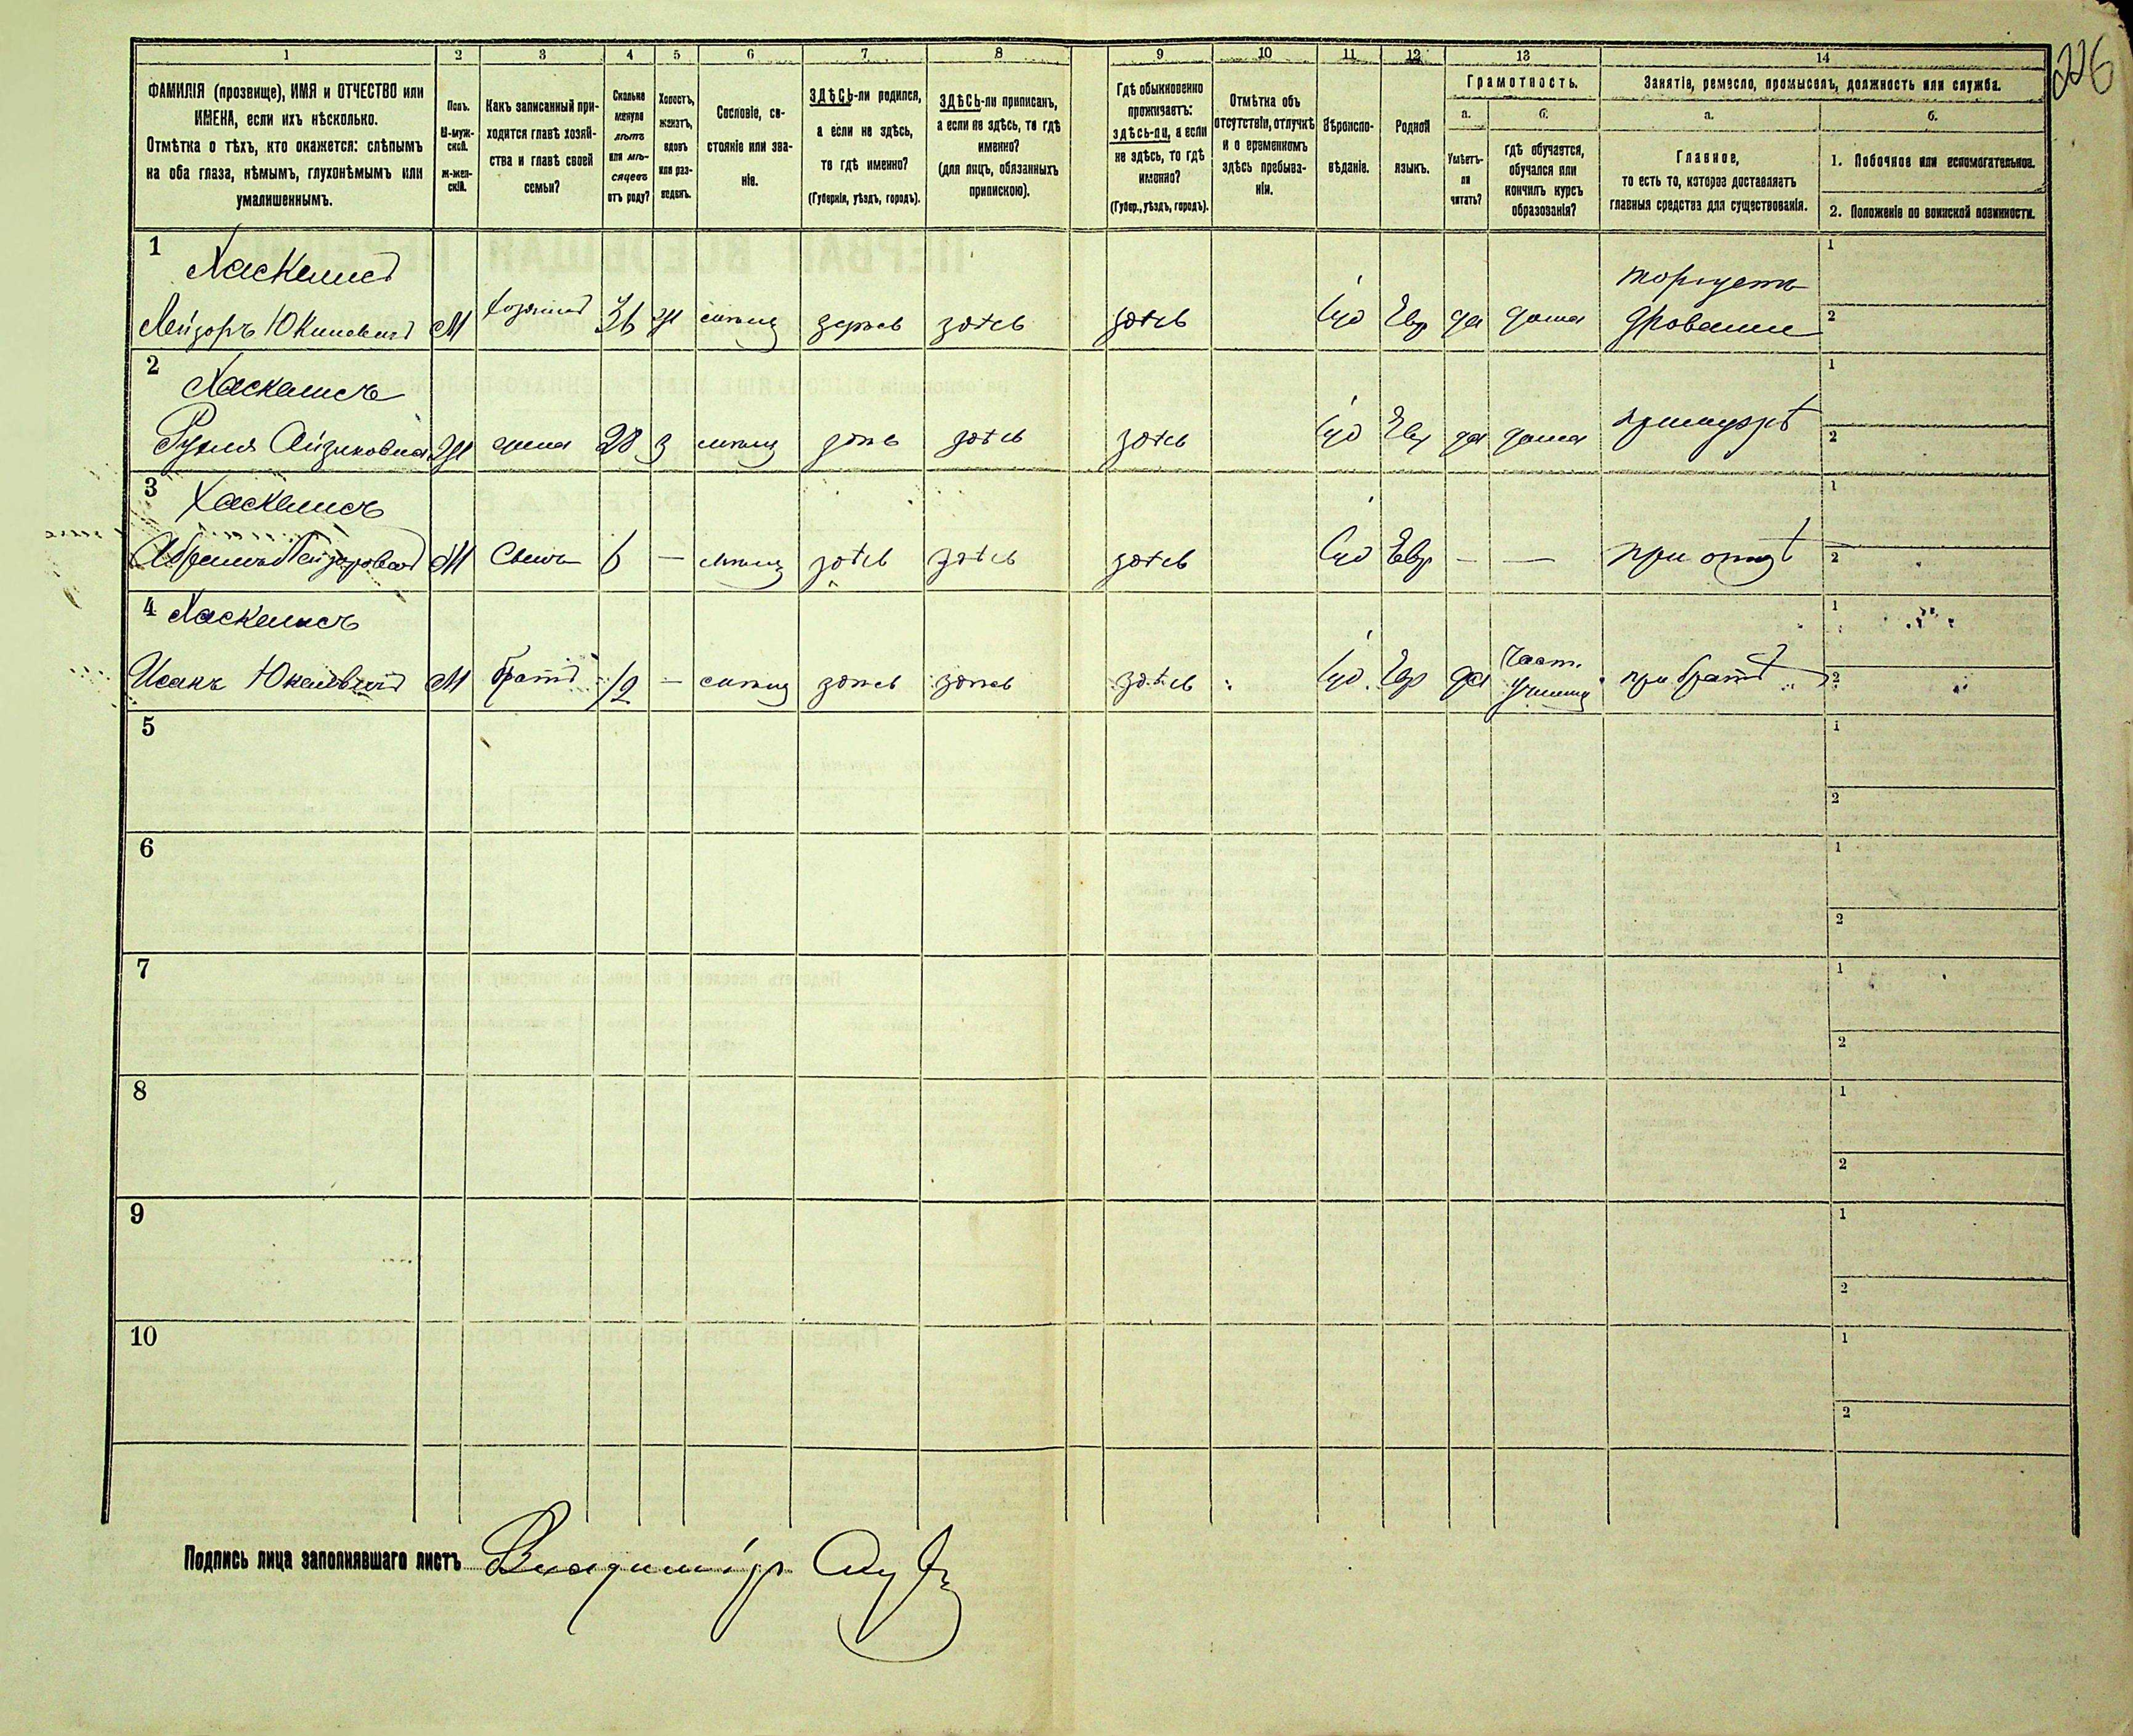 226
1
ФАМИЛІЯ (прозвище), ИМЯ и ОТЧЕСТВО или
ИМЕНА, если ихъ нѣсколько.
Отмѣтка о тѣхъ, кто окажется: слѣпымъ
на оба глаза, нѣмымъ, глухонѣмымъ или
умалишеннымъ.
2
Полъ.
М-муж-
ской.
Ж-жен-
скій.
3
Какъ записанный при-
ходится главѣ хозяй-
ства и главѣ своей
семьи?
4
Сколько
минуло
лѣтъ
или мѣ-
сяцевъ
отъ роду?
5
Холостъ,
женатъ,
вдовъ
или раз-
веденъ.
6
Сословіе, со-
стояніе или зва-
ніе.
7
ЗДѢСЬ-ли родился,
а если не здѣсь,
то гдѣ именно?
(Губернія, уѣздъ, городъ).
8
ЗДѢСЬ-ли приписанъ,
а если не здѣсь, то гдѣ
именно?
(для лицъ, обязанныхъ
припискою).
9
Гдѣ обыкновенно
проживаетъ:
здѣсь-ли, а если
не здѣсь, то гдѣ
именно?
(Губер., уѣздъ, городъ).
10
Отмѣтка объ
отсутствіи, отлучкѣ
и о временномъ
здѣсь пребыва-
ніи.
11
Вѣроиспо-
вѣданіе.
12
Родной
языкъ.
13
Грамотность.
а.
Умѣетъ-
ли
читать?
б.
гдѣ обучается,
обучался или
кончилъ курсъ
образованія?
14
Занятіе, ремесло, промыселъ, должность или служба.
а.
Главное,
то есть то, которое доставляетъ
главныя средства для существованія.
б.
1. Побочное или вспомогательное.
2. Положеніе по воинской повинности.
1
Хаскелисъ
Лейзоръ М хозяинъ 36 ж здѣсь здѣсь Іуд Евр да дома торгуетъ
дровами
1
2
2
Хаскелисъ
Айзиковна Ж жена 28 З здѣсь здѣсь здѣсь Іуд Евр да дома
1
2
3
Хаскелисъ
М Сынъ 6 — здѣсь здѣсь здѣсь Іуд Евр — — при отцѣ
1
2
4 Хаскелисъ
М братъ 12 — здѣсь здѣсь здѣсь Іуд Евр да Част. при братѣ
1
2
5
1
2
6
1
2
7
1
2
8
1
2
9
1
2
10
1
2
Подпись лица заполнявшаго листъ Владиміръ